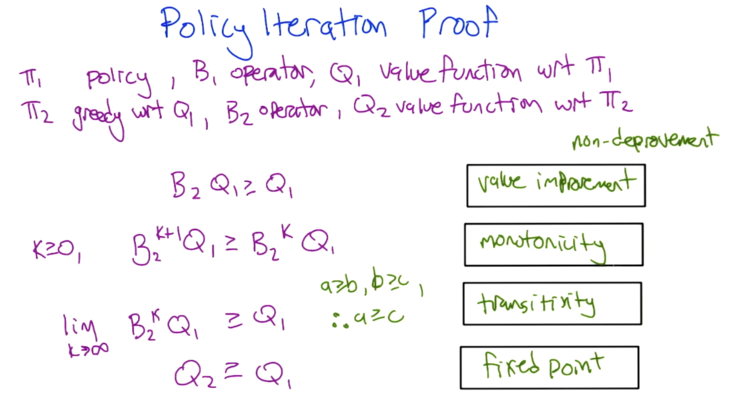 Policy Iteration Proof
π₁ policy, B₁ operator, Q₁ value function wrt π₁
π₂ greedy wrt Q₁, B₂ operator, Q₂ value function wrt π₂
non-deprovement
B₂ Q₁ ≥ Q₁ value improvement
K≥0, B₂ᴷ⁺¹ Q₁ ≥ B₂ᴷ Q₁ monotonicity
a≥b, b≥c,
∴ a≥c
lim K→∞ B₂ᴷ Q₁ ≥ Q₁ transitivity
Q₂ ≥ Q₁ fixed point